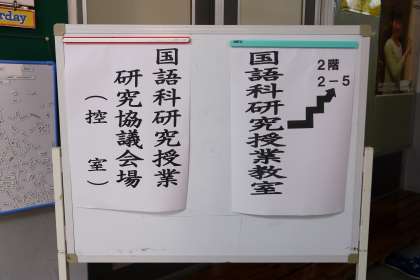 国語科研究授業
研究協議会場
(控室)
国語科研究授業教室
2階
2-5
rday